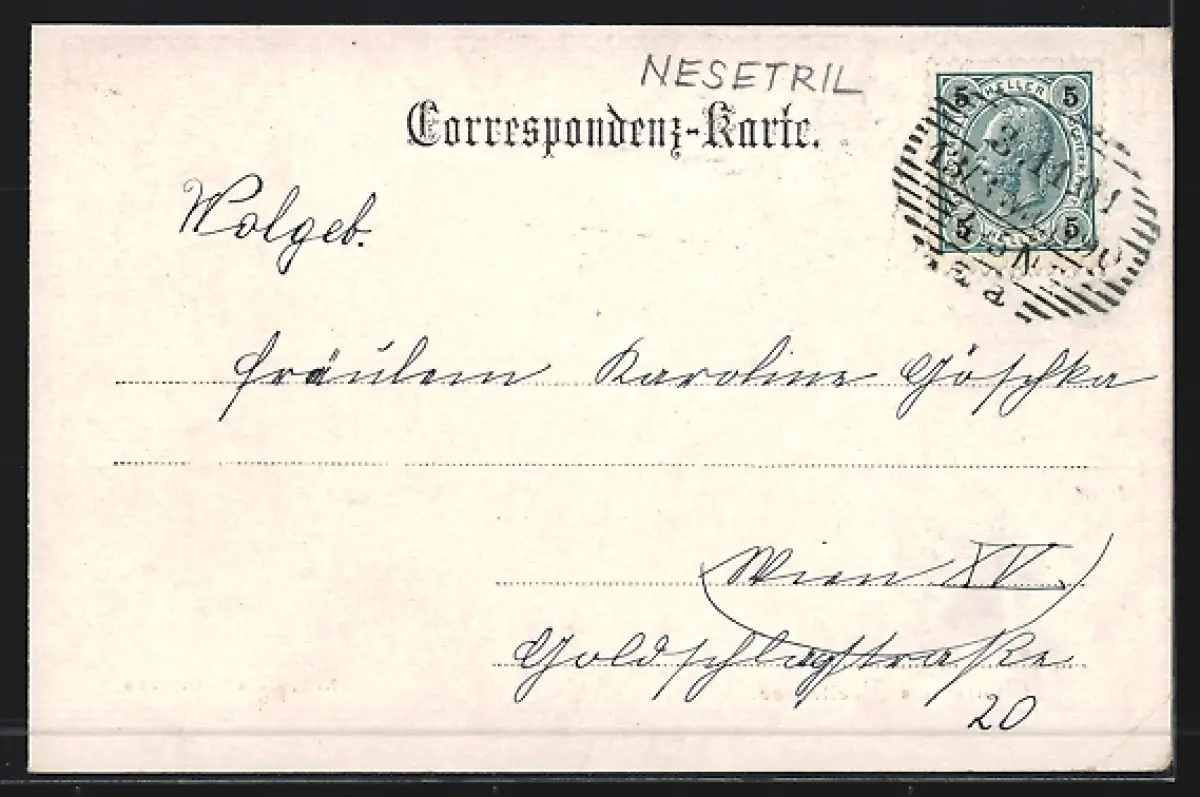 NESETRIL
Correspondenz-Karte.
5 HELLER 5
5 HELLER 5
3 11 01
WIEN
Wolgeb.
Fräulein Karoline Göschka
Wien XV.
Goldschlagstraße
20